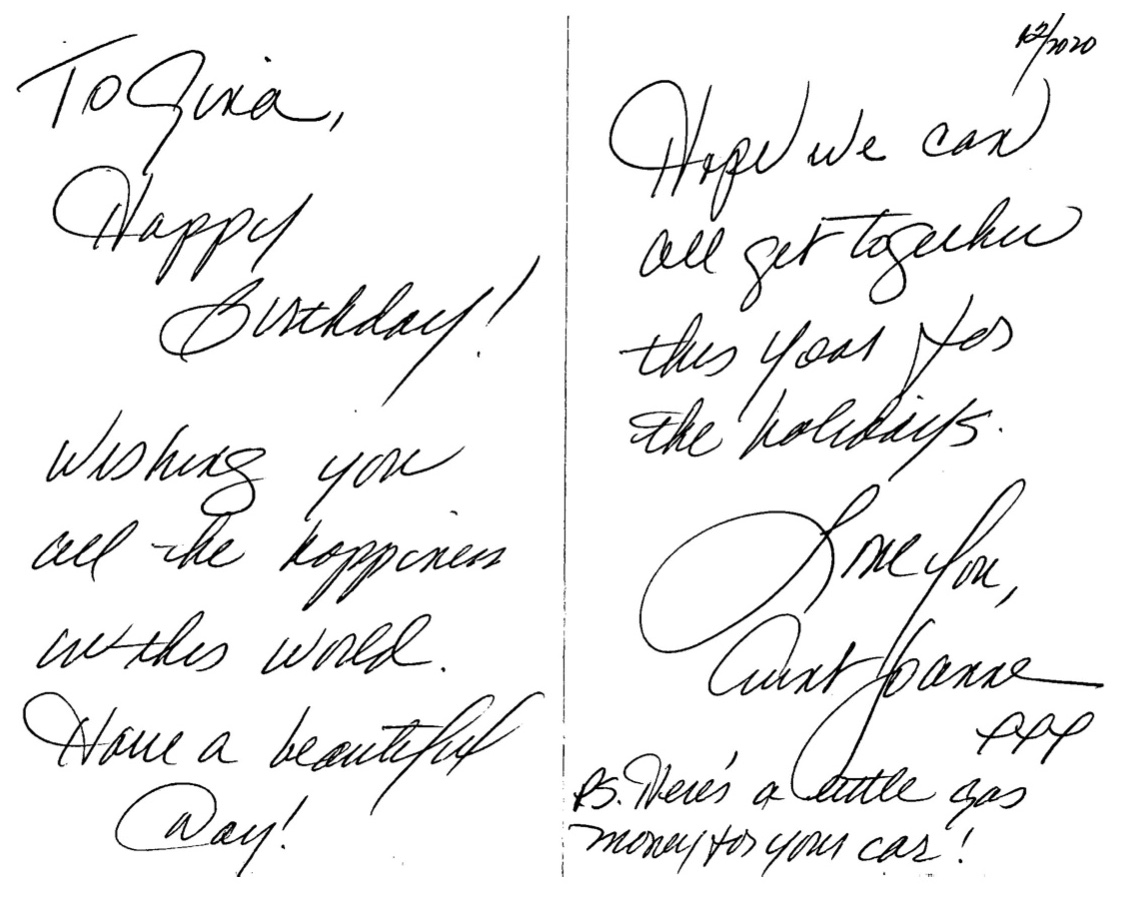 To Gina,
Happy
Birthday!
Wishing you
all the happiness
in this world.
Have a beautiful
Day!
12/2020
Hope we can
all get together
this year for
the holidays.
Love You,
Aunt Joanne
XXX
P.S. Here's a little gas
money for your car!